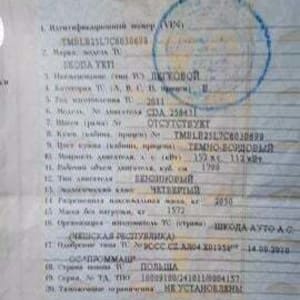 1. Идентификационный номер (VIN)
TMBLB25L7C6030698
2. Марка, модель ТС
SKODA YETI
3. Наименование (тип ТС) ЛЕГКОВОЙ
4. Категория ТС (А, В, С, D, прицеп) B
5. Год изготовления ТС 2011
6. Модель, № двигателя CDA
7. Шасси (рама) № ОТСУТСТВУЕТ
8. Кузов (кабина, прицеп) № TMBLB25L7C6030698
9. Цвет кузова (кабины, прицепа) ТЕМНО-БОРДОВЫЙ
10. Мощность двигателя, л. с. (кВт) 152 112
11. Рабочий объем двигателя, куб. см 1798
12. Тип двигателя БЕНЗИНОВЫЙ
13. Экологический класс ЧЕТВЕРТЫЙ
14. Разрешенная максимальная масса, кг 2050
15. Масса без нагрузки, кг 1572
16. Организация - изготовитель ТС (страна) ШКОДА АУТО А.С.
(ЧЕШСКАЯ РЕСПУБЛИКА)
17. Одобрение типа ТС №
ОС "ПРОММАШ"
18. Страна вывоза ТС ПОЛЬША
19. Серия, № ТД, ТПО
20. Таможенные ограничения НЕ УСТАНОВЛЕНЫ